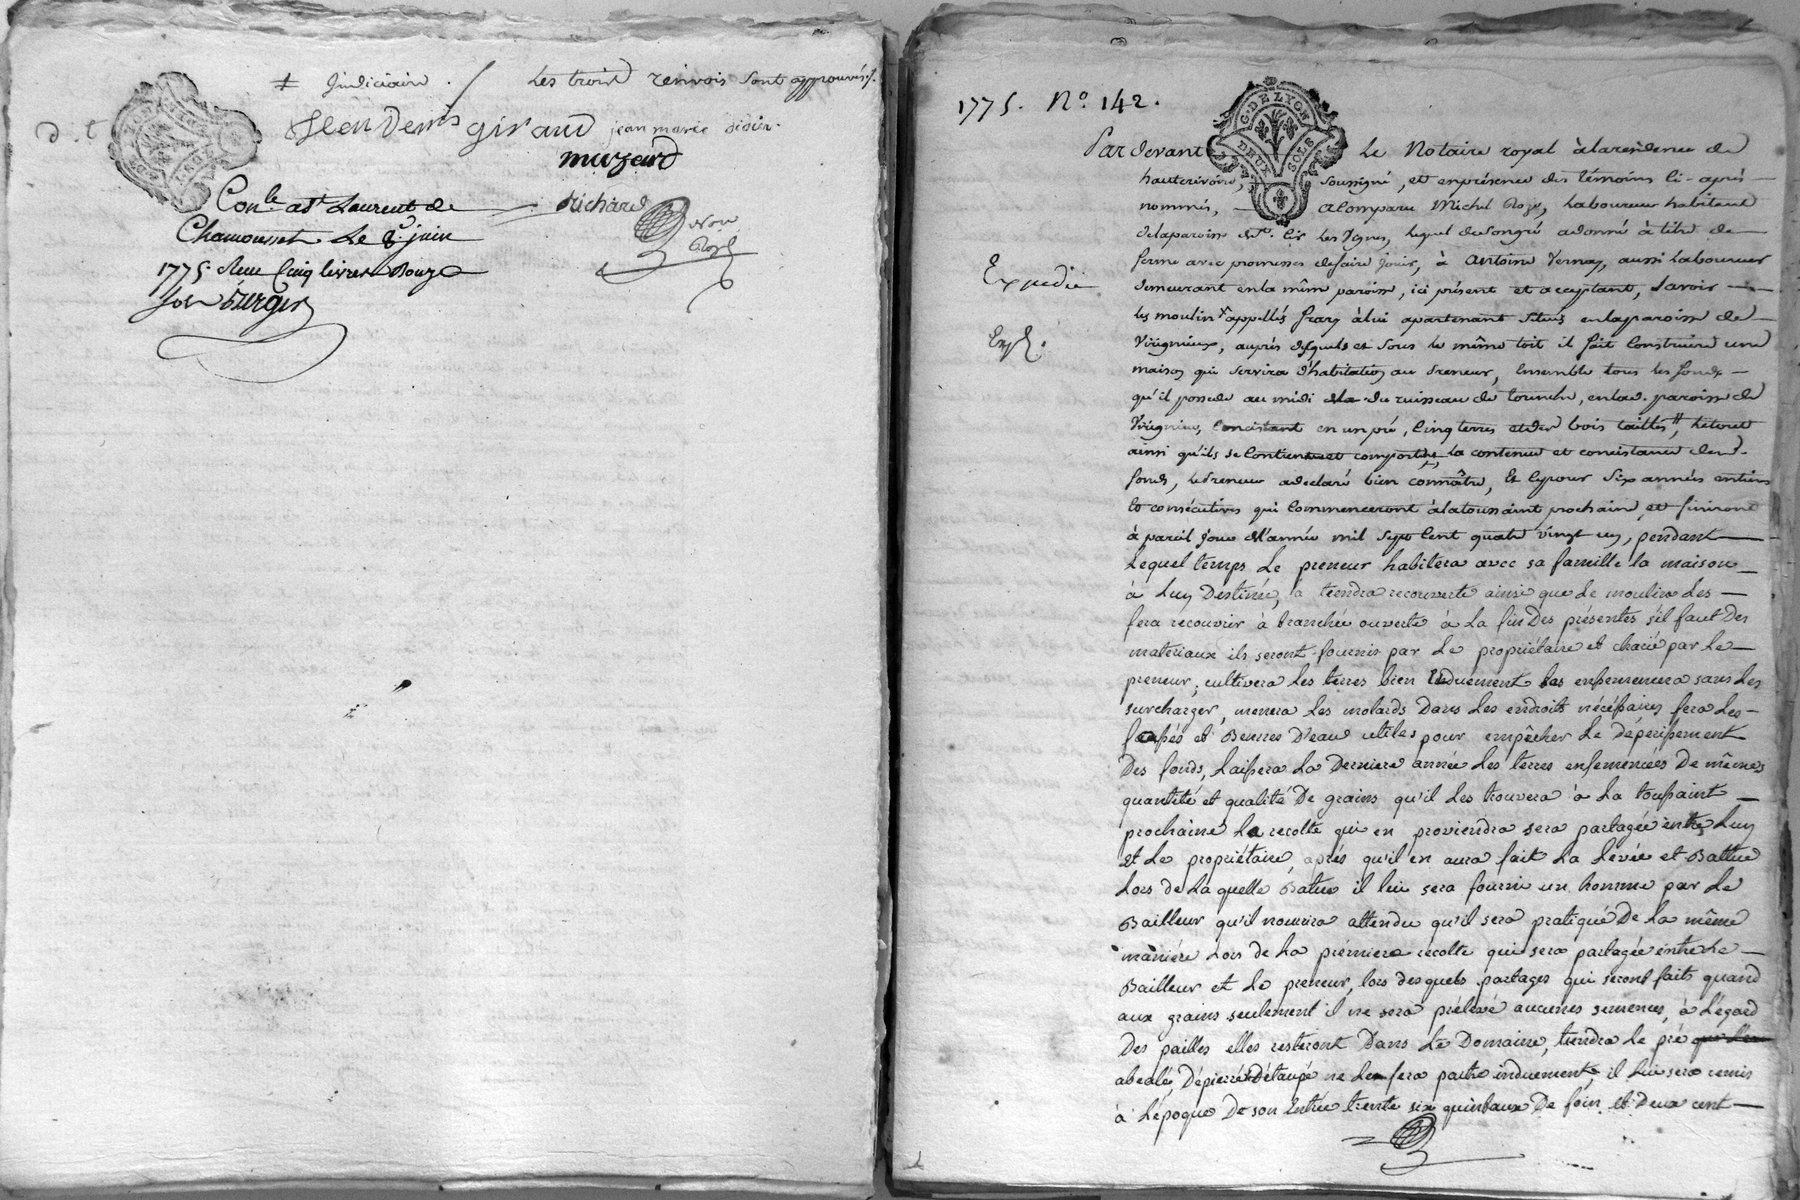 + Judiciaire . / Les trois renvois sont approuvés /.
d. t
Jean Denis giraud jean marie didier
muzard
Richard
Not. Royl
Conlé. à St Laurent de
Chamousset Le 8e. juin
1775. Reçu Cinq livres Douze
sols Berger
G. DE LYON
DEUX SOLS
1775. No. 142.
Pardevant Le Notaire royal à la residence de
hauterivoire, soussigné, et en présence des témoins ci-après
nommés, a Comparu Michel Roze, Laboureur habitant
de la paroisse de St. Cir les Vignes, lequel de son gré a donné à titre de
ferme avec promesses de faire jouir, à Antoine Vernay, aussi Laboureur
Expediée demeurant en la même paroisse, ici présent et acceptant, Savoir
les moulins appellés à lui apartenant situés en la paroisse de
Expl. Virigneux, auprès desquels et sous le même toit il fait Construire une
maison qui servira d'habitation au Preneur, Ensemble tous les fonds
qu'il possede au midi du ruisseau de en lad. paroisse de
Virignieu, Concistant en un pré, Cinq terres et des bois taillés, Letout
ainsi qu'ils se Contiennent et comportent, la contenue et concistance desd.
fonds, le Preneur a declaré bien connoître, Et ce pour Six années entieres
et consécutives qui Commenceront à la toussaint prochaine, et finiront
à pareil jour de l'année mil Sept Cent quatre vingt un, pendant
Lequel temps Le preneur habitera avec sa famille la maison
à Luy Destinée, la tiendra recouverte ainsi que Le moulin Les
fera recouvrir à tranchée ouverte à La fin Des présentes s'il faut Des
materiaux ils seront fournis par Le propriétaire et chariés par Le
preneur; cultivera Les terres bien enduement Les ensemencera sans Les
surcharger, menera Les molards Dans Les endroits nécéssaires fera Les
fossés et Bennes D'eau utiles pour empêcher Le Dépérissement
Des fonds, Laissera La Derniere année Les terres ensemencées De mêmes
quantité et qualité De grains qu'il Les trouvera à La toussaint
prochaine La recolte qui en proviendra sera partagée entre Luy
Et Le propriétaire, après qu'il en aura fait La Levée et Battue
Lors de La quelle Batue il lui sera fourni un homme par Le
Bailleur qu'il nourrira attendu qu'il sera pratiqué De La même
maniére Lors de La prémiere recolte qui sera partagée entre Le
Bailleur et Le preneur, lors desquels partages qui seront faits quand
aux grains seulement il ne sera prélevé aucunes semences, à Légard
Des pailles elles resteront Dans Le Domaine, tiendra Le pré
abealé, Dépierré Détaupé ne Le fera paitre induement, il Lui sera remis
à L'époque De son Entrée trente six quintaux De foin et Deux cent